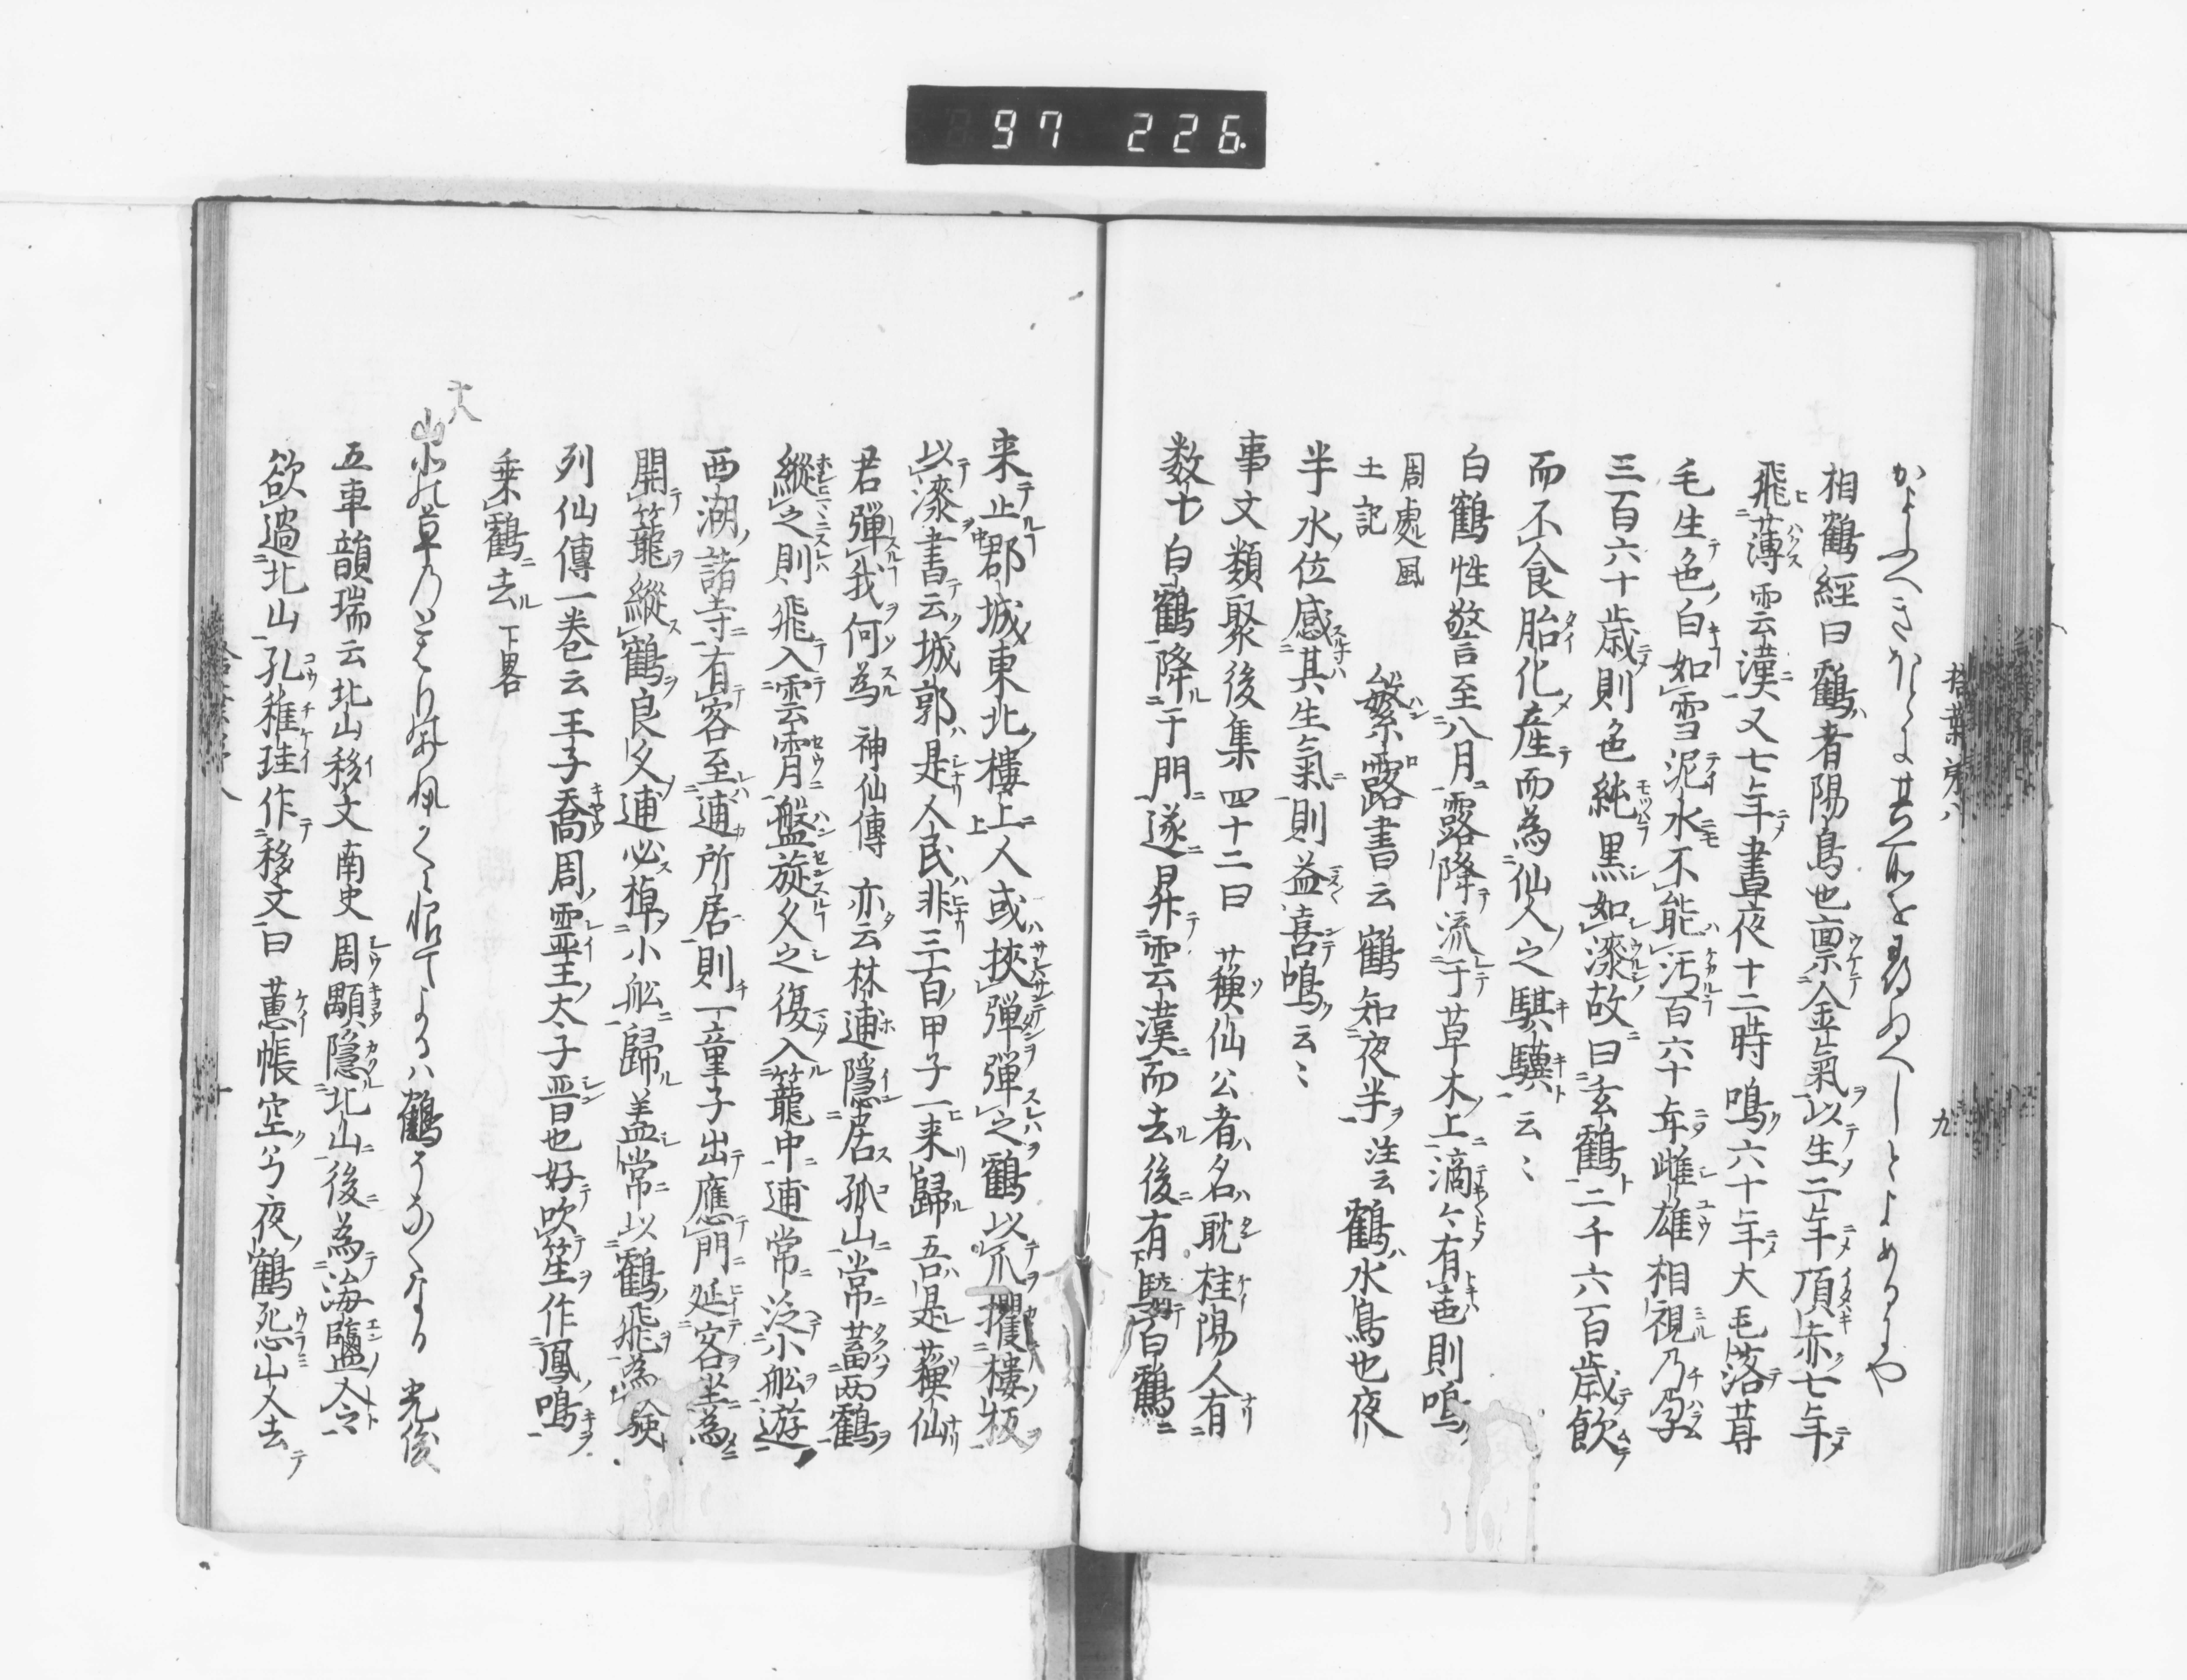 97 226
拾葉第八
九
かよふへきほとは其所を尋ぬへしとよめるにや
相鶴經曰鶴者陽鳥也禀金氣以生二年頂赤七年
飛薄雲漢又七年晝夜十二時鳴六十年大毛落茸
毛生色白如雪泥水不能汚百六十年雌雄相視乃孕
三百六十歳則色純黒如漆故曰玄鶴二千六百歳飲
而不食胎化産而為仙人之騏驥云〻
白鶴性警至八月露降流于草木上滴〻有声則鳴
周處風土記
繁露書云鶴知夜半注云鶴水鳥也夜
半水位感其生氣則益喜鳴云〻
事文類聚後集四十二曰 蘓仙公者名耽桂陽人有
数十白鶴降于門遂昇雲漢而去後有騎白鶴
来止郡城東北樓上人或挾彈彈之鶴以爪攫樓板
以漆書云城郭是人民非三百甲子一来歸吾是蘓仙
君彈我何為 神仙傳 亦云林逋隠居孤山常蓄兩鶴
縱之則飛入雲霄盤旋久之復入籠中逋常泛小舩遊
西湖諸寺有客至逋所居則一童子出應門延客坐為
開籠縱鶴良久逋必棹小舩歸盖常以鶴飛為験
列仙傳一巻云王子喬周霊王太子晋也好吹笙作鳳鳴
乗鶴去 下畧
十八
光俊
五車韻瑞云北山移文南史周顒隠北山後為海鹽令
欲過北山孔稚珪作移文曰 蕙帳空兮夜鶴怨山人去